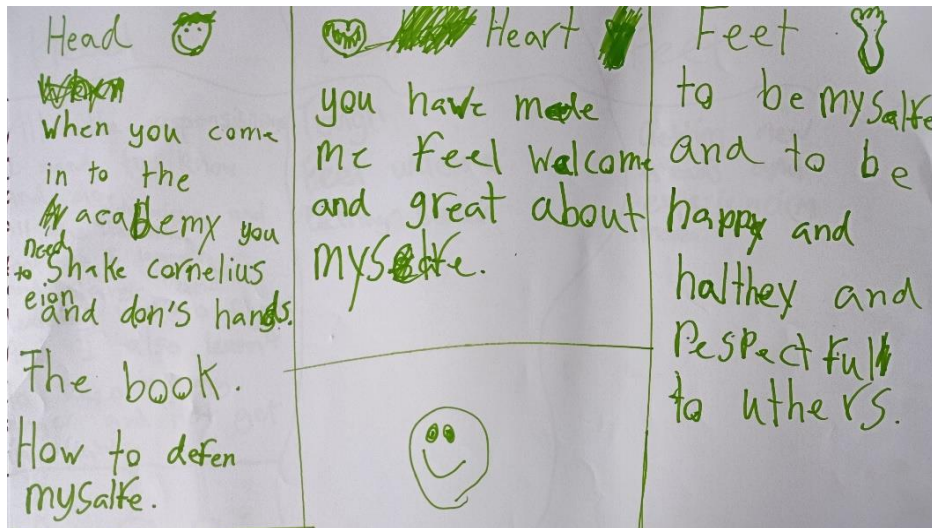 Head
When you come
in to the
academy you
need
to shake cornelius
eion
and don's hands.
The book.
How to defen
mysalfe.
Heart
you have made
me feel welcome
and great about
mysalfe.
Feet
to be mysalfe
and to be
happy and
halthey and
respectfull
to uthers.